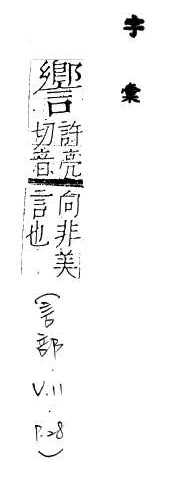 字彙
許亮
切音
向非美
言也
(言部．V.11．P.28)